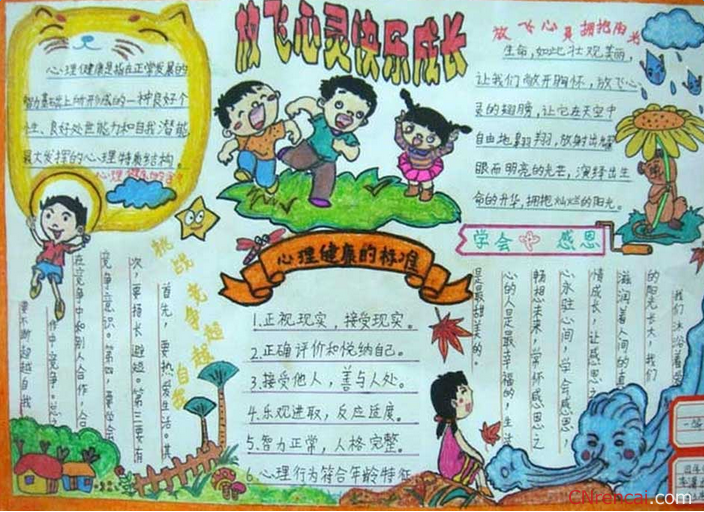 放飞心灵快乐成长
心理健康是指在正常发展的
智力基础上所形成的一种良好个
性、良好处世能力和自我潜能
最大发挥的心理特质结构。
放飞心灵拥抱阳光
生命,如此壮观美丽,
让我们敞开胸怀,放飞心
灵的翅膀,让它在天空中
自由地翱翔,放射出耀
眼而明亮的光芒,演绎出生
命的升华,拥抱灿烂的阳光。
学会
感恩
心理健康的标准
1.正视现实,接受现实。
2.正确评价和悦纳自己。
3.接受他人,善与人处。
4.乐观进取,反应适度。
5.智力正常,人格完整。
6.心理行为符合年龄特征
挑战竞争超越自我
首先,要热爱生活。其
次,要扬长避短。第三要有
竞争意识。第四,要学会
在竞争中和别人合作,合
作中竞争。
要不断超越自我
我们沐浴着
的阳光长大,我们
滋润着人间的真
情成长,让感恩之
心永驻心间,学会感恩,
畅想未来,常怀感恩之
心的人是最幸福的,生活
是最甜美的。
CNrencai.com